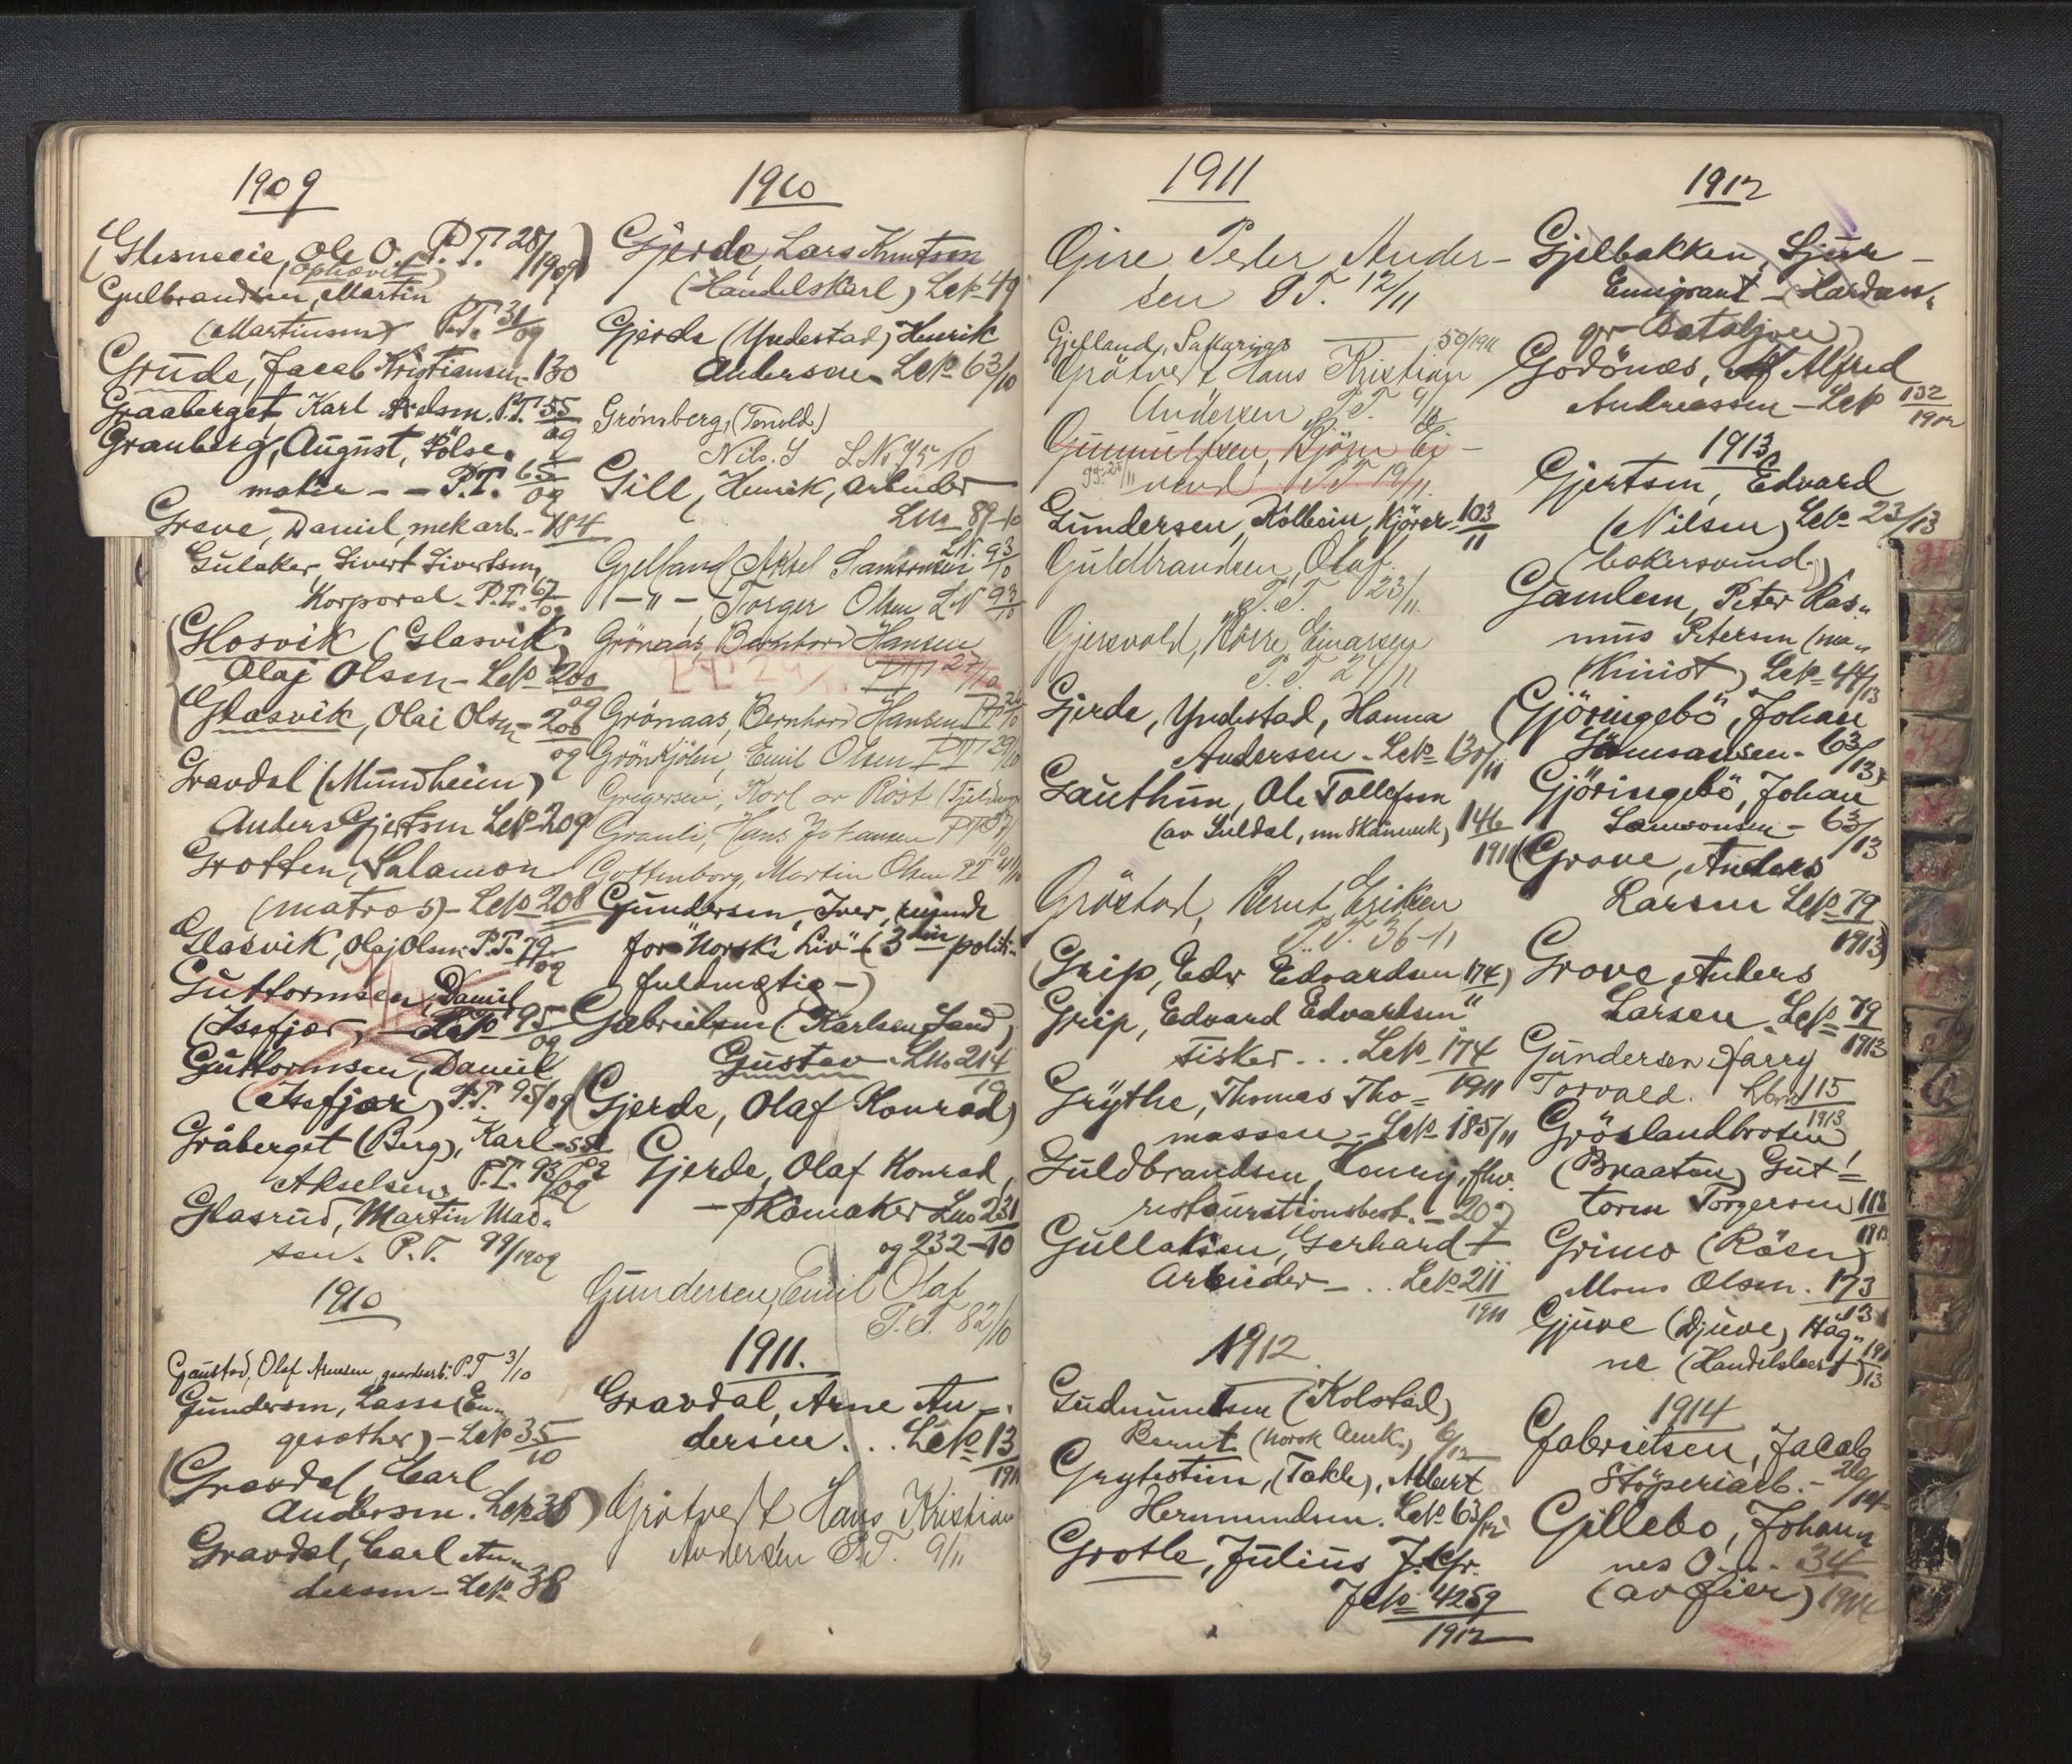 1909
Ole O. P.T. 28/1909)
(ophævet)
Gulbrandsen, Martin
(Martinsen) P.T. 31/09
Grude, Jacob Kristiansen - 130
Graaberget, Karl P.T. 55/09
Granberg, August, Pölse-
maker - - P.T. 65/09
Greve, Daniel, mek arb. - 184
Gulaker, Sivert Sivertsen,
Korporal - P.T. 67/09
(Glosvik (Glasvik)
Olaj Olsen - Lek 200/09
(Glasvik, Olai Olsen - 206/09
Gravdal (Mundheim)
Anders Gjertsen Lek 209
Grotten, Salamon
(matros) - Lek 208
Glasvik, Olaj Olsen P.T. 79/09
Guttormsen, Daniel
(Issfjær) - Lek 95/09
Guttormsen, Daniel
(Issfjær) P.T. 95/09
Gråberget (Berg), Karl
Akselsen P.T. 93/09
Glasrud, Martin Mad-
sen. P.T. 99/1909
1910
Gaustad, Olaf Arnesen, P.T 3/10
Gundersen, Lasse (En-
gesæther) - Lek 35/10
(Gravdal, Carl
Andersen. Lek 38)
Gravdal, Carl An-
dersen - Lek 38
1910
Gjerde, Lars Knutsen
(Handelskarl) Lek 49
Gjerde (Yndestad) Henrik
Andersen - Lek 63/10
Grönsberg, (Tenold.)
Nils. S L.No 75/10
Gill, Henrik, Arbeider
LNo 89-10
Gjelland Aksel Samsonsen LN. 93/10
-"- - Torger Olsen LN 93/10
Grönaas, Bernhard Hansen
PT 27/10
Grönaas, Bernhard Hansen PT 26/10
Grönkjölen, Emil Olsen PT 29/10
Gregersen, Karl av Röst
Granli, Hans Johansen PT
Gottenborg, Martin Olsen PT 41/10
Gundersen, Iver, reisende
for "Norsk Liv" (3 politi-
fuldmægtig -)
Gabrielsen (Karlsen Sand)
Gustav - LNo 214/10
(Gjerde, Olaf Konrad)
Gjerde, Olaf Konrad,
- Skomaker LNo 231
og 232-10
Gundersen, Emil Olaf
P.T. 82/10
1911.
Gravdal, Arne An-
dersen... Lek 13/1911
Grötvedt Hans Kristian
Andersen P.T. 9/11
1911
Gire Peder Ander-
sen P.T. 12/11
Gjelland, Sakarias 50/1911
Grötvedt Hans Kristian
Andersen P.T. 9/11
Gummundsen, Björn Ei-
vind P.T. 19/11.
Gundersen, Kolbein, Kjörer - 103/11
Guldbrandsen, Olaf.
P.T. 23/11.
Gjersvold, Kåre Einarsen
P.T. 24/11
Gjerde, Yndestad, Hanna
Andersen - Lek 130/11
Gauthun, Ole Tollefsen
(av Suldal, nu Skånevik) 146/1911
Gröstad, Bernt Eriksen
P.T. 36-11
(Grip, Edv Edvardsen 174)
Grip, Edvard Edvardsen
Fisker... Lek 174/1911
Grÿthe, Thomas Tho-
massen - Lek 185/11
Guldbrandsen, Konny, fhv.
restaurationsbest. - 207
Gullaksen, Gerhard
Arbeider - .. Lek 211/1911
1912
Gudmundsen (Kolstad)
Bernt (Norsk Amk.) 6/12
Grytestim, (Takle), Albert
Hermundsen. Lek 63/12
Grotle, Julius J. Gr.
Jek 4259/1912
1912
Gjelbakken, Sjur -
Emigrant - (Hardan-
ger Bataljon)
Godönes, Alfred
Andreassen - Lek 132/1912
1913
Gjertsen, Edvard
(Nilsen) Lek 23/13
(bakersvend)
Gamlem, Peter Ras-
mus Petersen (ma-
skinist) Lek 44/13
(Gjöringebö, Johan
Samsonsen - 63/13)
Gjöringebö, Johan
Samsonsen - 63/13
(Grove, Anders
Larsen Lek 79/1913)
Grove, Anders
Larsen. Lek 79/1913
Gundersen Harry
Torvald. 115/1913
Gröslandbroten
(Braaten) Gut-
torm Torgersen 118/1913
Grimo (Råen)
Mons Olsen. 173/13
Gjuve (Djuve) Hag-
ne (Handelsbest) 191/13
1914
Gabrielsen, Jacob
Stöperiarb. - 26/14
Gillebo, Johan-
nes O... 34/1914
(av Gier)